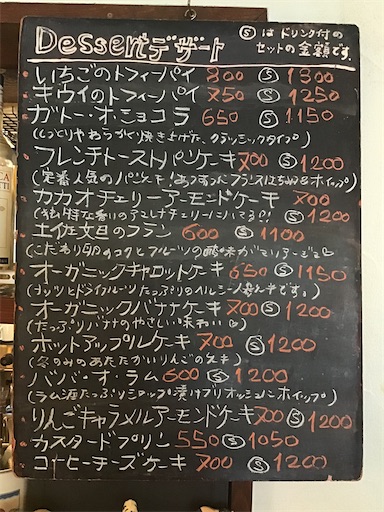 Dessert デザート
Ⓢ は ドリンク付の
セットの金額です。
いちごのトフィーパイ 800 Ⓢ 1300
キウイのトフィーパイ 750 Ⓢ 1250
ガトー・オ・ショコラ 650 Ⓢ 1150
(しっとりやわらかく焼き上げた、クラッシックタイプ)
フレンチトーストパンケーキ 700 Ⓢ 1200
(定番人気のパンケーキ!あつあつ
カカオチェリーアーモンドケーキ 700
Ⓢ 1200
土佐文旦のフラン 600 Ⓢ 1100
(こだわり卵のコクとフルーツの酸味が
オーガニックキャロットケーキ 650 Ⓢ 1150
(ナッツとドライフルーツたっぷりのヘルシー
オーガニックバナナケーキ 700 Ⓢ 1200
(たっぷりバナナのやさしい味わい♡)
ホットアップルケーキ 700 Ⓢ 1200
(冬のみのあたたかいりんごのケーキ)
ババ・オ・ラム 600 Ⓢ 1200
(ラム酒たっぷりシロップ漬けブリオッシュにホイップ)
りんごキャラメルアーモンドケーキ 700 Ⓢ 1200
カスタードプリン 550 Ⓢ 1050
コーヒーチーズケーキ 700 Ⓢ 1200